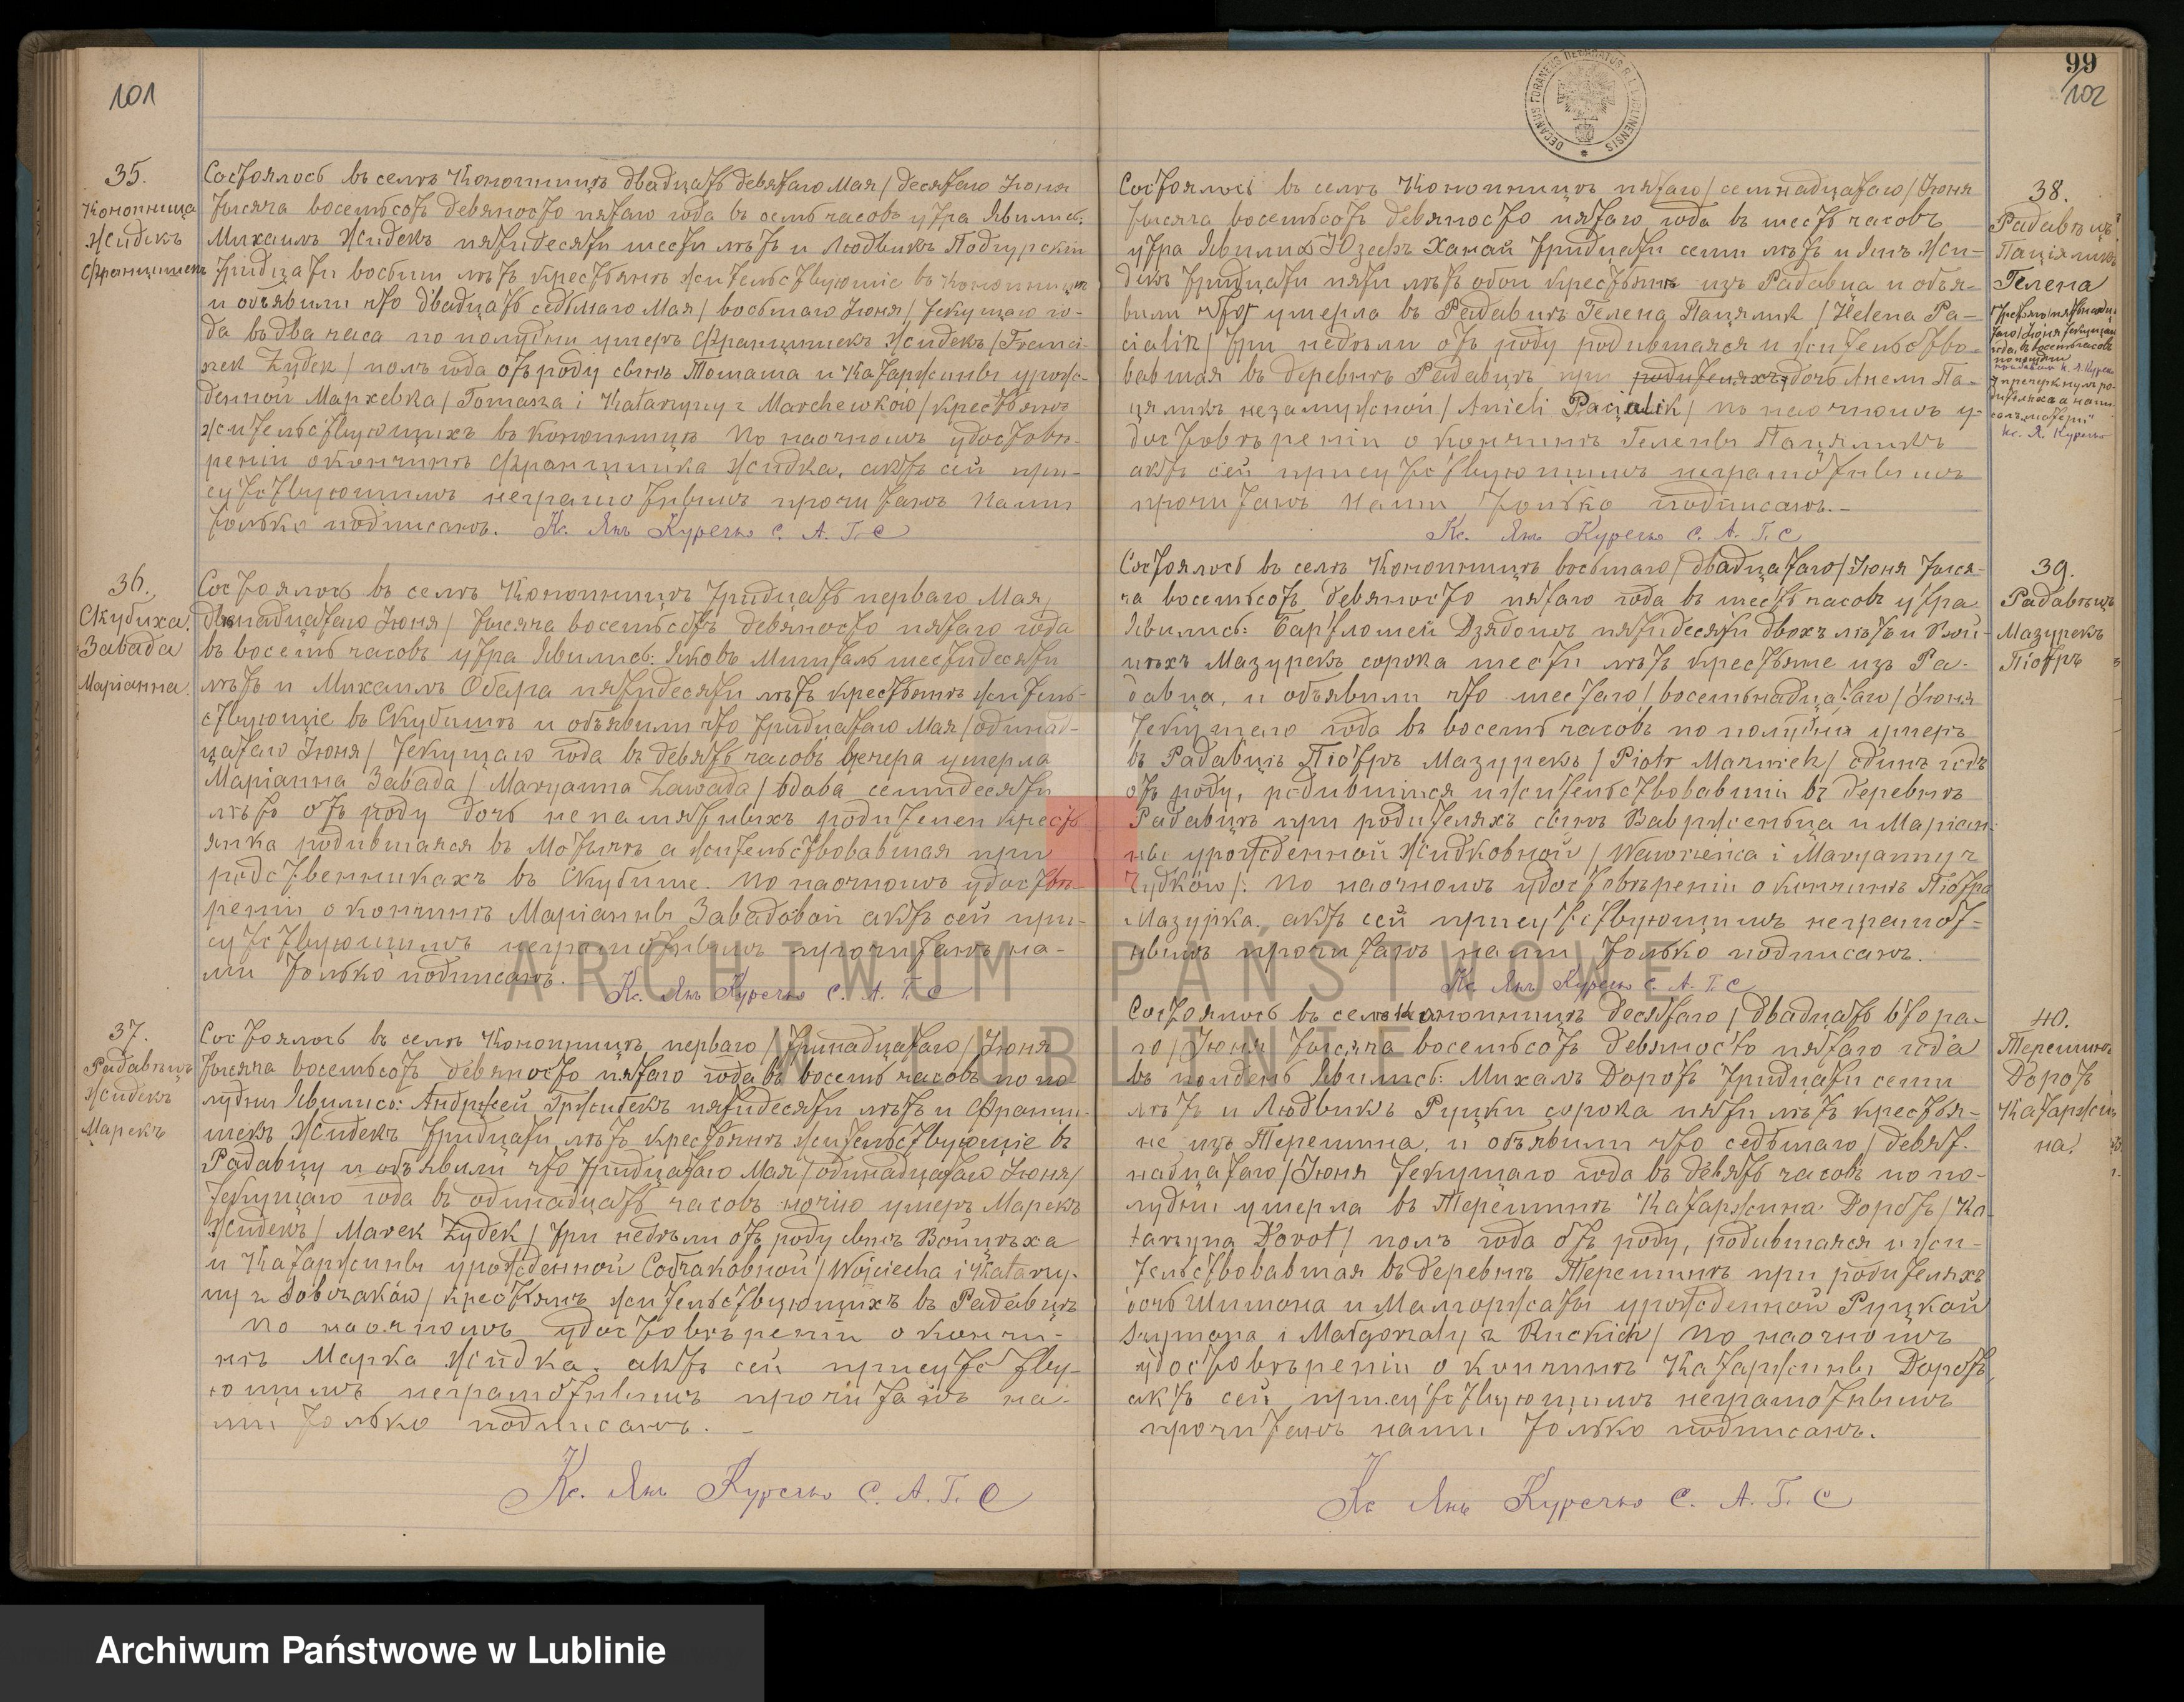 101
35.
Конопница
Жидекъ
Францишекъ
Состоялось въ селѣ Конопницѣ двадцать девятаго Мая / десятаго Іюня
тысяча восемьсотъ девяносто пятаго года въ осмь часовъ утра Явились:
Михаилъ Жидекъ пятидесяти шести лѣтъ и Людвикъ Подгурскій
тридцати восьми лѣтъ крестьянѣ жительствующіе въ Конопницѣ
и объявили что двадцать седьмаго Мая / восьмаго Іюня / текущаго го-
да въ два часа по полудни умеръ Францишекъ Жидекъ / Franci-
szek Żydek / полъ года отъ роду сынъ Томаша и Катаржины урож-
денной Мархевка / Tomasza i Katarzyny z Marchewków / крестьянъ
жительствующихъ въ Конопницѣ. По наочномъ удостовѣ-
реніи о кончинѣ Францишка Жидка, актъ сей при-
сутствующимъ неграмотнымъ прочитанъ Нами
только подписанъ. Кс. Янъ Куречко С. А. Г. С
36.
Скубиха.
Завада
Маріанна.
Состоялось въ селѣ Конопницѣ тридцать перваго Мая /
двѣнадцатаго Іюня / тысяча восемьсотъ девяносто пятаго года
въ восемь часовъ утра Явились: Яковъ Мишталь шестидесяти
лѣтъ и Михаилъ Обара пятидесяти лѣтъ крестьянѣ житель-
ствующіе въ Скубишѣ и объявили что тридцатаго Мая / одинад-
цатаго Іюня / текущаго года въ девять часовъ вечера умерла
Маріанна Завада / Maryanna Zawada / вдова семидесяти
лѣтъ отъ роду дочь непамятныхъ родителей крестъ
янка родившаяся въ Мотычѣ а жительствовавшая при
родственникахъ въ Скубише. По наочномъ удостовѣ-
реніи о кончинѣ Маріанны Завадовой актъ сей при-
сутствующимъ неграмотнымъ прочитанъ на-
ми только подписанъ.
Кс. Янъ Куречко С. А. Г. С
37.
Радавецъ
Жидекъ
Марекъ
Состоялось въ селѣ Конопницѣ перваго / тринадцатаго / Іюня
тысяча восемьсотъ девяносто пятаго года въ восемь часовъ по по
лудни Явились: Андржей Гржибекъ пятидесяти лѣтъ и Франци-
шекъ Жидекъ тридцати лѣтъ крестьянѣ жительствующіе въ
Радавцу и объявили что тридцатаго Мая / одинадцатаго Іюня /
текущаго года въ одинадцать часовъ ночію умеръ Марекъ
Жидекъ / Marek Żydek / три недѣли отъ роду сынъ Войцѣха
и Катаржины урожденной Собчаковной / Wojciecha i Katarzy-
ny z Sobczaków / крестьянъ жительствующихъ въ Радавцѣ
По наочномъ удостовѣреніи о кончи-
нѣ Марка Жидка, актъ сей присутству-
ющимъ неграмотнымъ прочитанъ на-
ми только подписанъ. -
Кс. Янъ Куречко С. А. Г. С
DECANUS FORANEUS DECANATUS LUBLINENSIS
99
102
38.
Радавецъ
Паціяликъ
Гелена
Состоялось въ селѣ Конопницѣ пятаго / семнадцатаго / Іюня
тысяча восемьсотъ девяносто пятаго года въ шесть часовъ
утра Явились Юзефъ Ханай тридцати семи лѣтъ и Янъ Жи-
декъ тридцати пяти лѣтъ обои крестьянѣ изъ Радавца и объя-
вили что умерла въ Радавцѣ Гелена Пацяликъ / Helena Pa-
cialik / три недѣли отъ роду родившаяся и жительство-
вавшая въ деревнѣ Радавцѣ при родителяхъ дочь Анели Па-
цяликъ незамужной / Anieli Pacialik / По наочномъ у-
достовѣреніи о кончинѣ Гелены Пацяликъ
актъ сей присутствующимъ неграмотнымъ
прочитанъ Нами только подписанъ. -
Кс. Янъ Куречко С. А. Г. С
39.
Радавецъ
Мазурекъ
Піотръ
Состоялось въ селѣ Конопницѣ восьмаго / двадцатаго / Іюня тыся-
ча восемьсотъ девяносто пятаго года въ шесть часовъ утра
Явились: Бартломей Дзядошъ пятидесяти двохъ лѣтъ и Вой-
цѣхъ Мазурекъ сорока шести лѣтъ крестьяне изъ Ра-
давца, и объявили что шестаго / восемьнадцатаго / Іюня
текущаго года въ восемь часовъ по полудни умеръ
въ Радавцѣ Піотръ Мазурекъ / Piotr Mazurek / одинъ годъ
отъ роду, родившійся и жительствовавшій въ деревнѣ
Радавцѣ при родителяхъ сынъ Ваврженьца и Маріан-
ны урожденной Жидковной / Wawrzeńca i Maryanny z
Żydków /. По наочномъ удостовѣреніи о кончинѣ Піотра
Мазурка, актъ сей присутствующимъ неграмот-
нымъ прочитанъ нами только подписанъ.
Кс. Янъ Куречко С. А. Г. С
40.
Терешинъ
Доротъ
Катаржи
на.
Состоялось въ селѣ Конопницѣ десятаго / двадцать втора-
го / Іюня тысяча восемьсотъ девяносто пятаго года
въ полдень Явились: Михалъ Доротъ тридцати семи
лѣтъ и Людвикъ Руцки сорока пяти лѣтъ крестья-
не изъ Терешина, и объявили что седьмаго / девят-
надцатаго / Іюня текущаго года въ девять часовъ по по-
лудни умерла въ Терешинѣ Катаржина Доротъ / Ka-
tarzyna Dorot / полъ года отъ роду, родившаяся и жи-
тельствовавшая въ деревнѣ Терешинѣ при родителяхъ
дочь Шимона и Малгоржаты урожденной Руцкой
Szymona i Małgorzaty z Ruckich / По наочномъ
удостовѣреніи о кончинѣ Катаржины Доротъ,
актъ сей присутствующимъ неграмотнымъ
прочитанъ нами только подписанъ.
Кс Янъ Куречко С. А. Г. С
ARCHIWUM PAŃSTWOWE
W LUBLINIE
Archiwum Państwowe w Lublinie